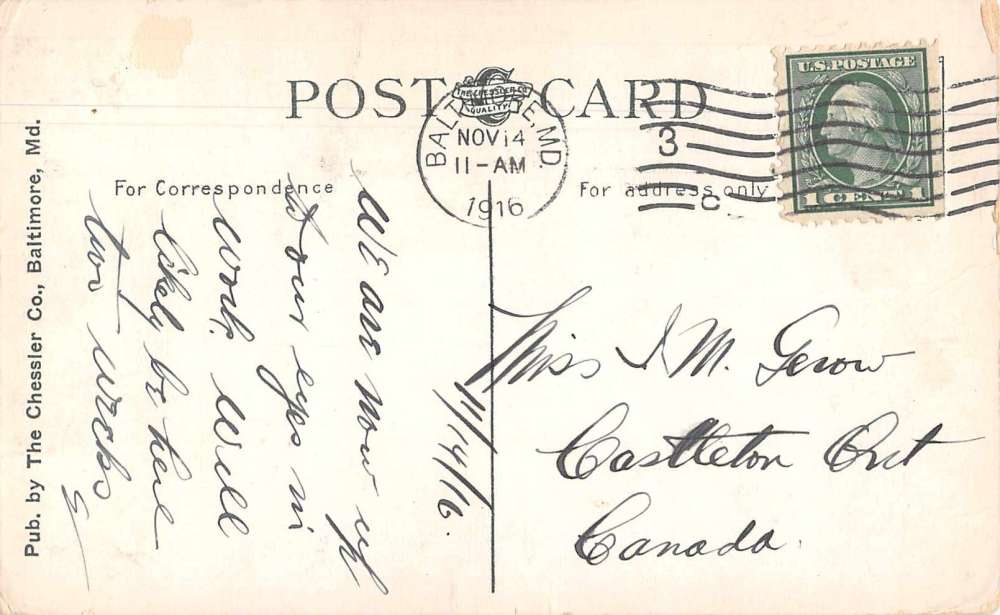 POST CARD
THE CHESSLER CO.
QUALITY
BALTIMORE, MD.
NOV 14
11-AM
1916
3
C
U.S. POSTAGE
1 CENT 1
For Correspondence
For address only
11/14/16.
We are now up
to our eyes in
work. Will
likely be here
two weeks
Miss I M. Gerow
Castleton Ont
Canada.
Pub. by The Chessler Co., Baltimore, Md.